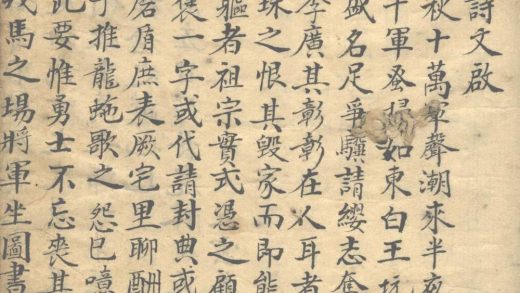 詩文啟
秋十萬軍聲潮來半夜
千軍蚤掃如東白王坑
盛名足爭驥請纓志奮
李廣其彰彰在人耳者
珠之恨其毀家而即能
軀者祖宗實式憑之顧
褒一字或代請封典或
庶表厥宅里聊酬
子推龍蛇歌之怨已噫
此要惟勇士不忘喪其
戎馬之場將軍坐圖書